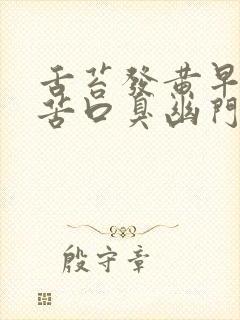 舌苔發黃早
苦口臭幽門
殷守章